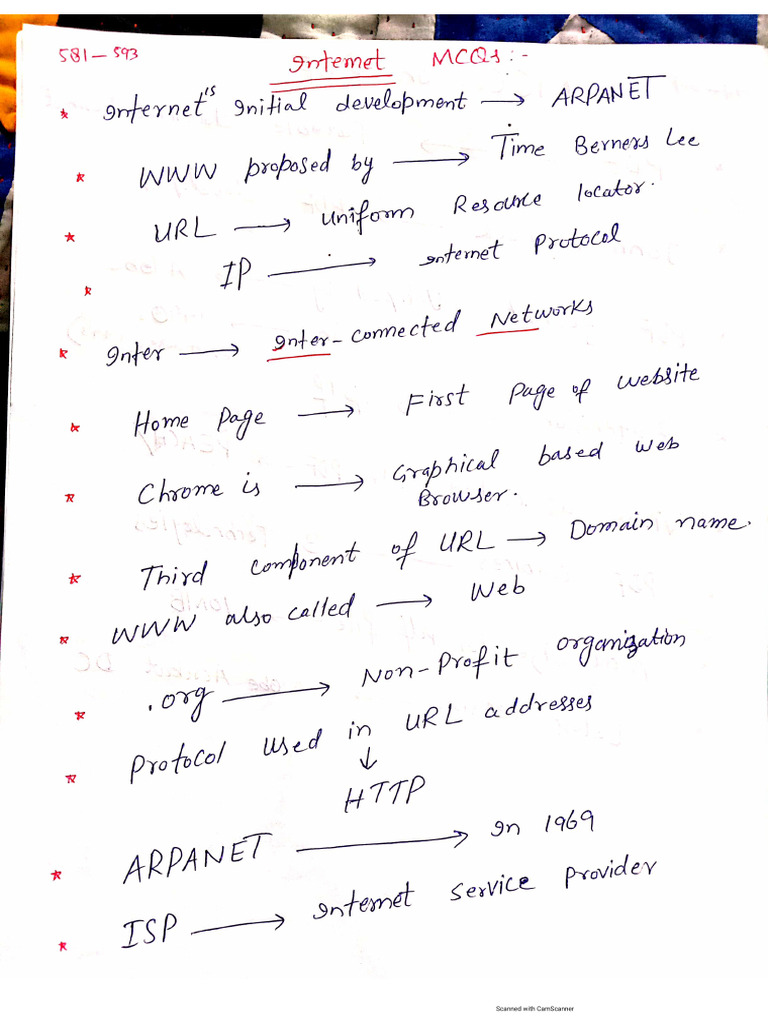 581-593
Internet MCQs:-
* Internet's Initial development → ARPANET
* WWW proposed by → Time Berners Lee
* URL → Uniform Resource locator.
* IP → Internet Protocol
* Inter → Inter-Connected Networks
* Home Page → First Page of website
* Chrome is → Graphical based web
Browser.
* Third component of URL → Domain name.
* WWW also called → Web
* .org → Non-Profit organization
* Protocol used in URL addresses
↓
HTTP
* ARPANET → In 1969
* ISP → Internet Service Provider
Scanned with CamScanner